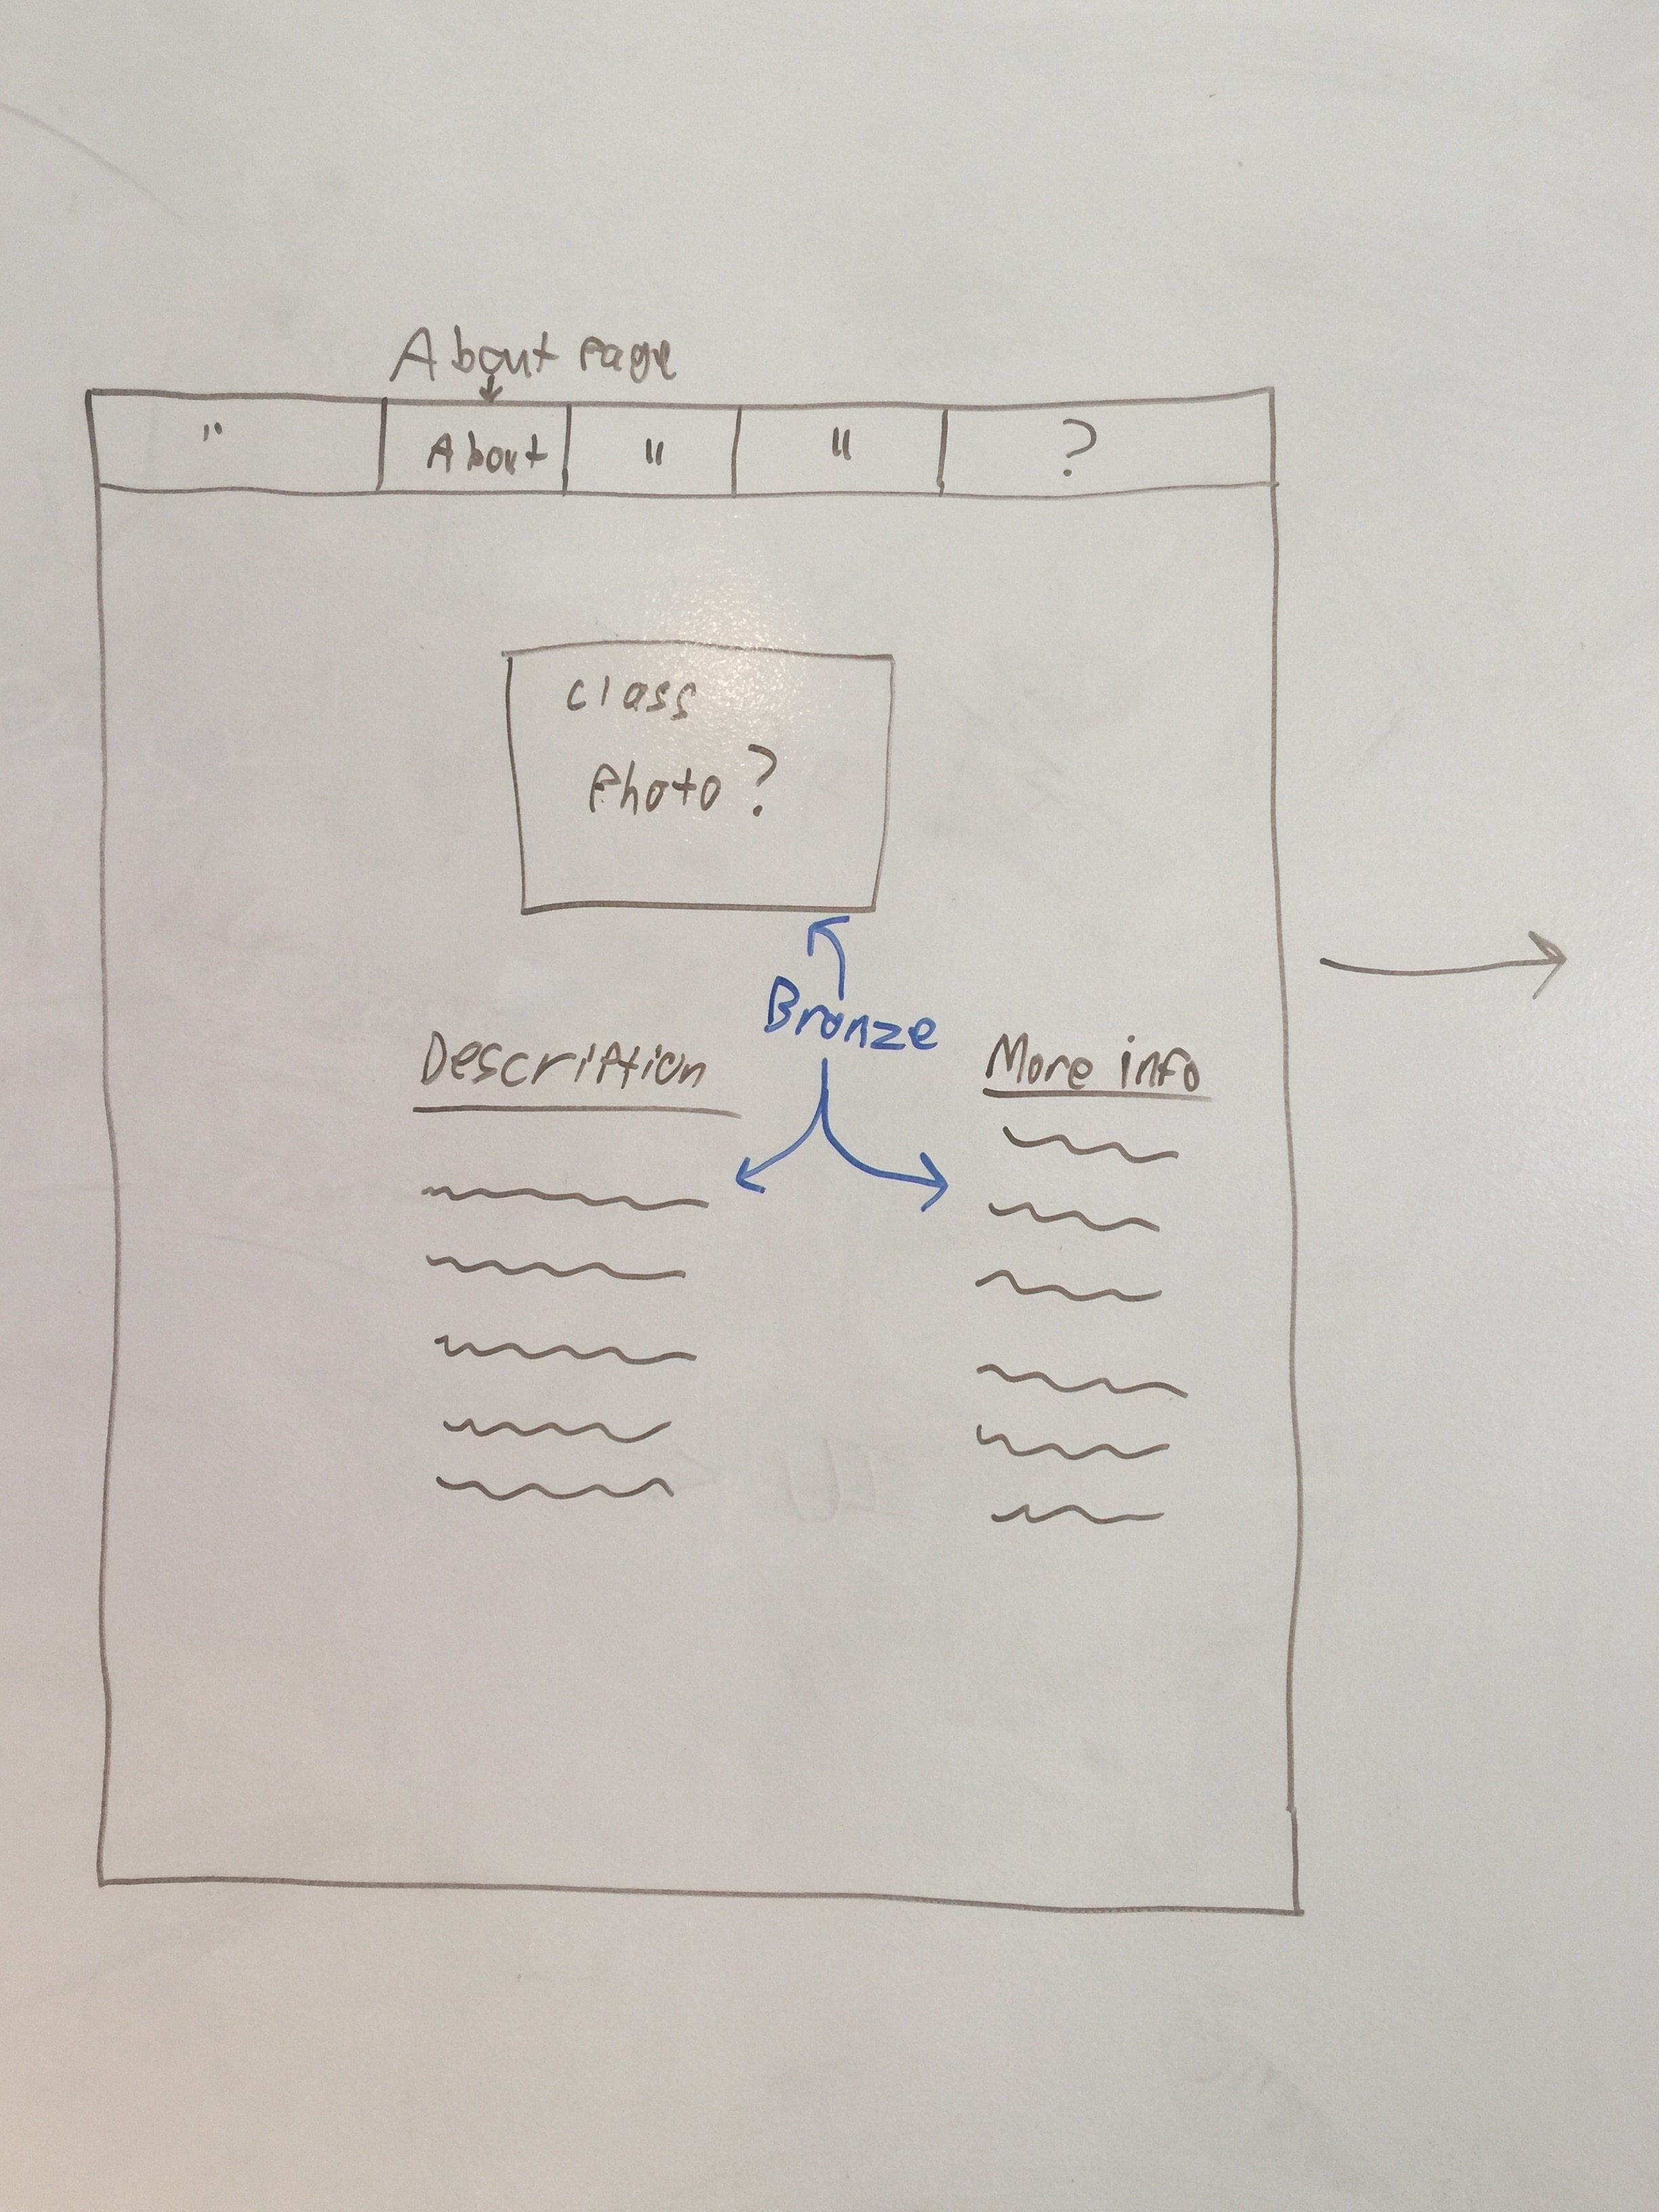 About Page
" About " " ?
class
Photo?
Bronze
Description
More info